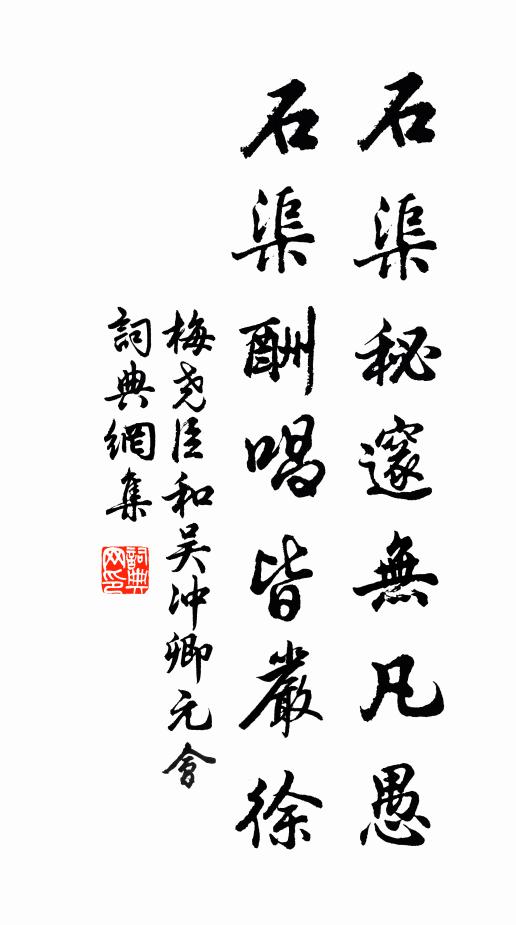 石渠秘邃無凡愚
石渠酬唱皆嚴徐
梅尧臣和吴冲卿元會
詞典網集
詞典網印